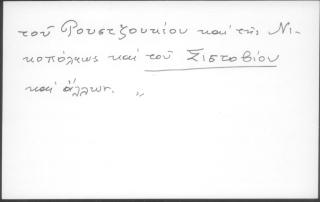 τοῦ Ρουστζουκίου καὶ τῆς Νι-
κοπόλεως καὶ τοῦ Σιστοβίου
καὶ ἄλλων. „